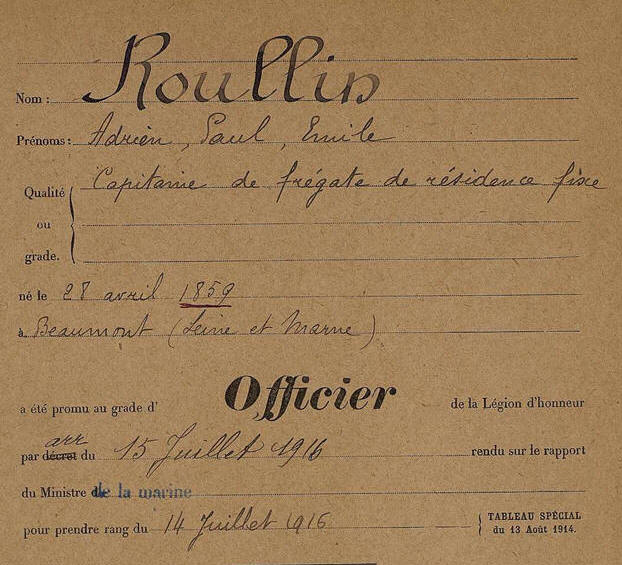 Nom : Roullin
Prénoms : Adrien, Paul, Emile
Qualité ou grade. Capitaine de frégate de résidence fixe
né le 28 avril 1859
à Beaumont (Seine et Marne)
a été promu au grade d' Officier de la Légion d'honneur
par décret arr du 15 Juillet 1916 rendu sur le rapport
du Ministre de la marine
pour prendre rang du 14 Juillet 1916 TABLEAU SPÉCIAL
du 13 Août 1914.